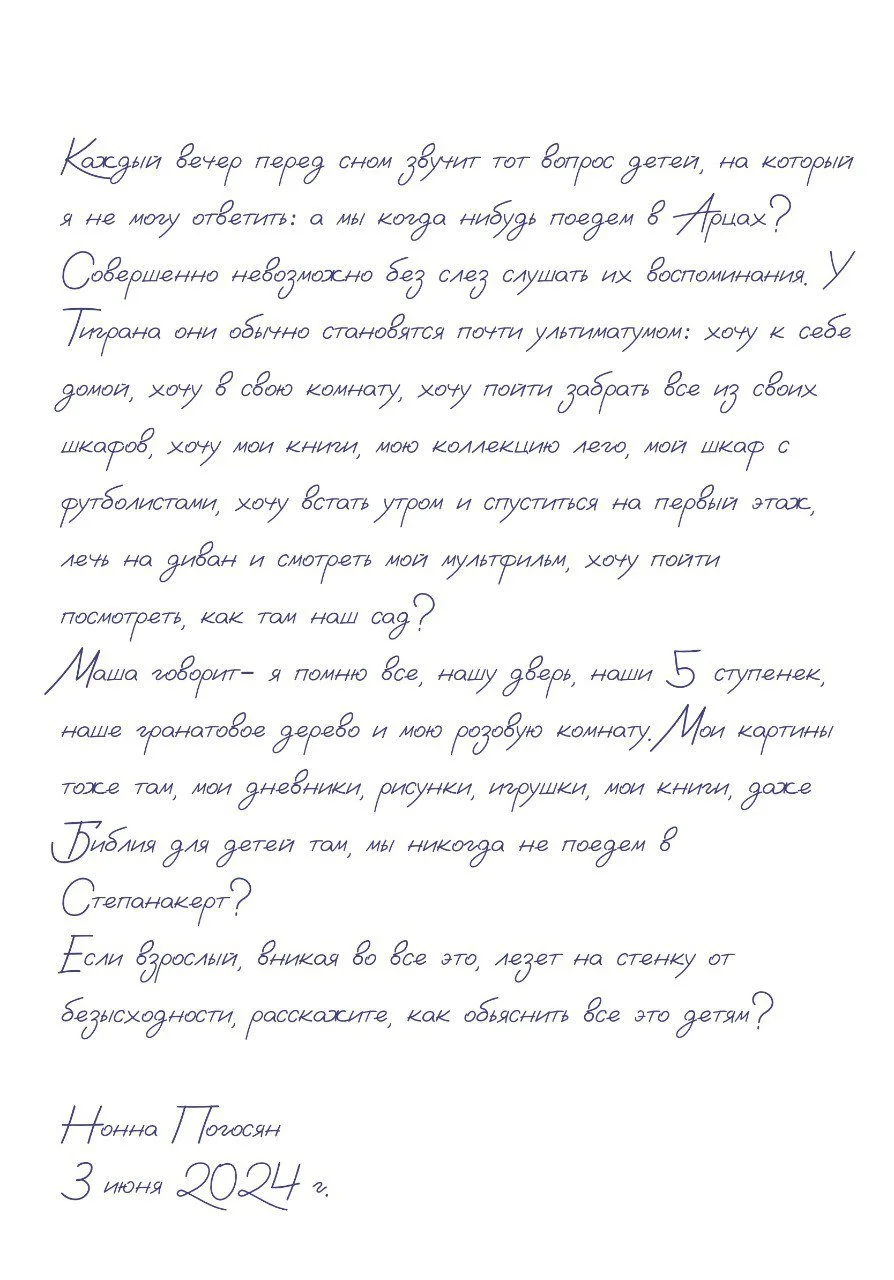 Каждый вечер перед сном звучит тот вопрос детей, на который
я не могу ответить: а мы когда нибудь поедем в Арцах?
Совершенно невозможно без слез слушать их воспоминания. У
Тиграна они обычно становятся почти ультиматумом: хочу к себе
домой, хочу в свою комнату, хочу пойти забрать все из своих
шкафов, хочу мои книги, мою коллекцию лего, мой шкаф с
футболистами, хочу встать утром и спуститься на первый этаж,
лечь на диван и смотреть мой мультфильм, хочу пойти
посмотреть, как там наш сад?
Маша говорит– я помню все, нашу дверь, наши 5 ступенек,
наше гранатовое дерево и мою розовую комнату. Мои картины
тоже там, мои дневники, рисунки, игрушки, мои книги, даже
Библия для детей там, мы никогда не поедем в
Степанакерт?
Если взрослый, вникая во все это, лезет на стенку от
безысходности, расскажите, как обьяснить все это детям?
Нонна Погосян
3 июня 2024 г.